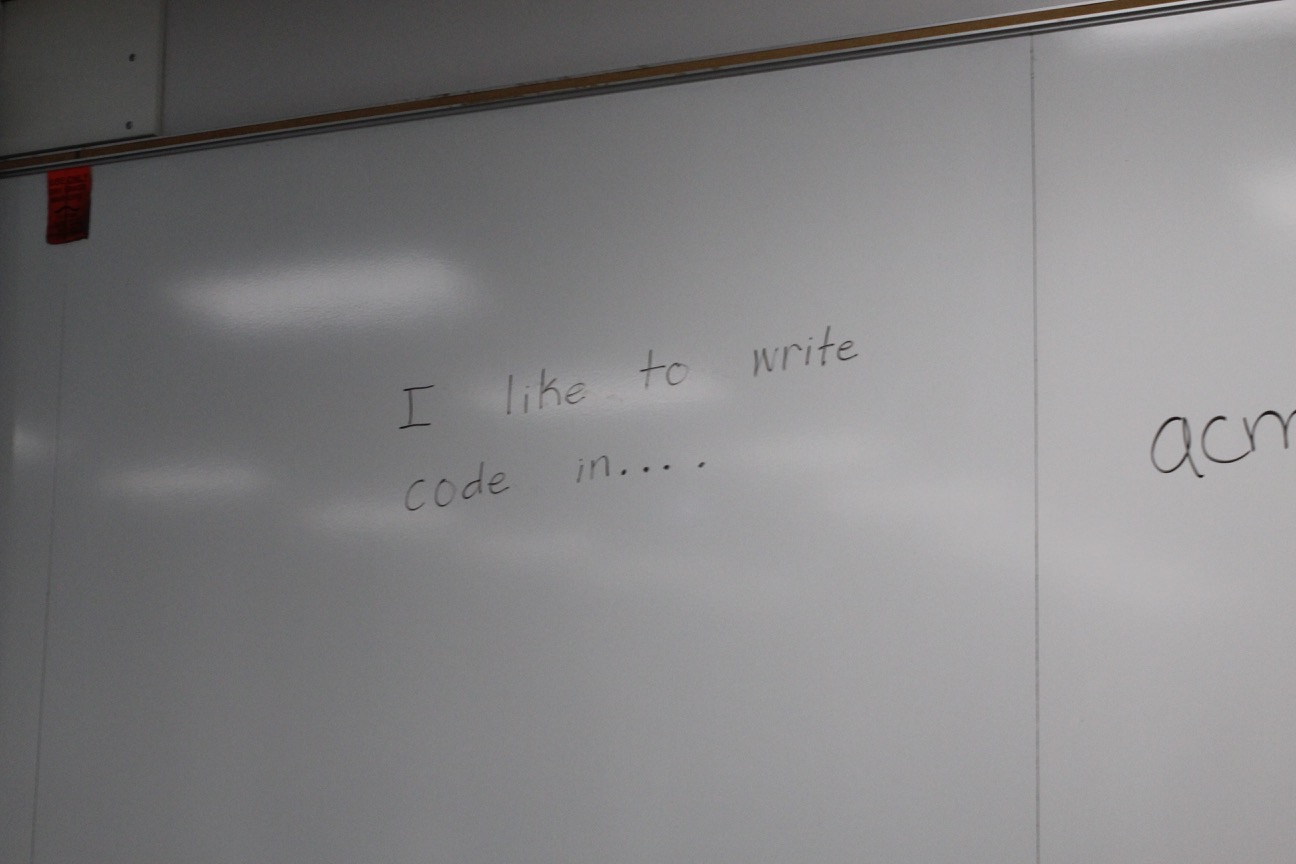 I like to write
code in....
acm